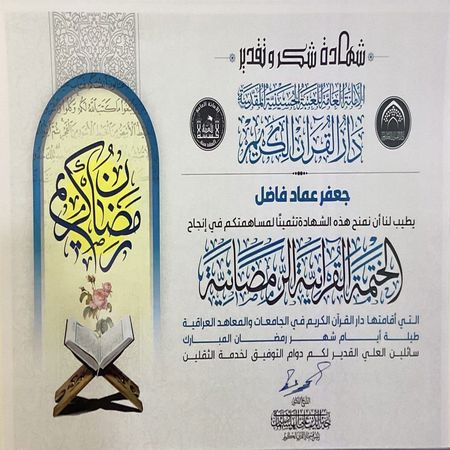 شهادة شكر وتقدير
الأمانة العامة للعتبة الحسينية المقدسة
دار القرآن الكريم
جعفر عماد فاضل
يطيب لنا أن نمنح هذه الشهادة تثمينًا لمساهمتكم في إنجاح
الختمة القرآنية الرمضانية
التي أقامتها دار القرآن الكريم في الجامعات والمعاهد العراقية
طيلة أيام شهر رمضان المبارك
سائلين العلي القدير لكم دوام التوفيق لخدمة الثقلين
رمضان كريم